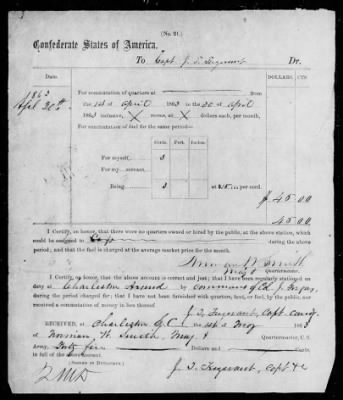 (No. 21.)
Confederate States of America,
To Capt. J. T.
Dr.
Date.
DOLLARS. CTS
1863
April 30th
For commutation of quarters at
from
the 1st of April 1863 to the 30 of April
1863 inclusive, X rooms, at X dollars each, per month,
For commutation of fuel for the same period—
Cords. Feet. Inches.
For myself, 3
For my servant,
Being 3 at $15.00 per cord.
$ 45.00
45.00
I Certify, on honor, that there were no quarters owned or hired by the public, at the above station, which
could be assigned to Capt during the above
period; and that the fuel is charged at the average market price for the month.
Norman W. Smith
Maj & Quartermaster.
I Certify, on honor, that the above account is correct and just; that I have been regularly stationed on
duty at Charleston Arsenal by command of Col J. Gorgas,
during the period charged for; that I have not been furnished with quarters, tent, or fuel, by the public, nor received
a commutation of money in lieu thereof.
J. T. Capt
RECEIVED, at Charleston S.C. 1st May 1863
of Norman W. Smith, Maj & Quartermaster, C. S.
Army, Forty five Dollars and Cents,
in full of the above account.
(SIGNED IN DUPLICATE.)
J. T. Capt &c